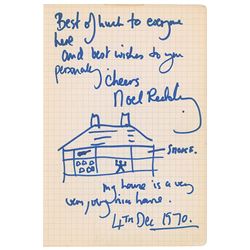 Best of luck to everyone
here
and best wishes to you
personally
Cheers
Noel Redding
SMOKE.
my house is a very
very, very house.
4TH Dec 1970.